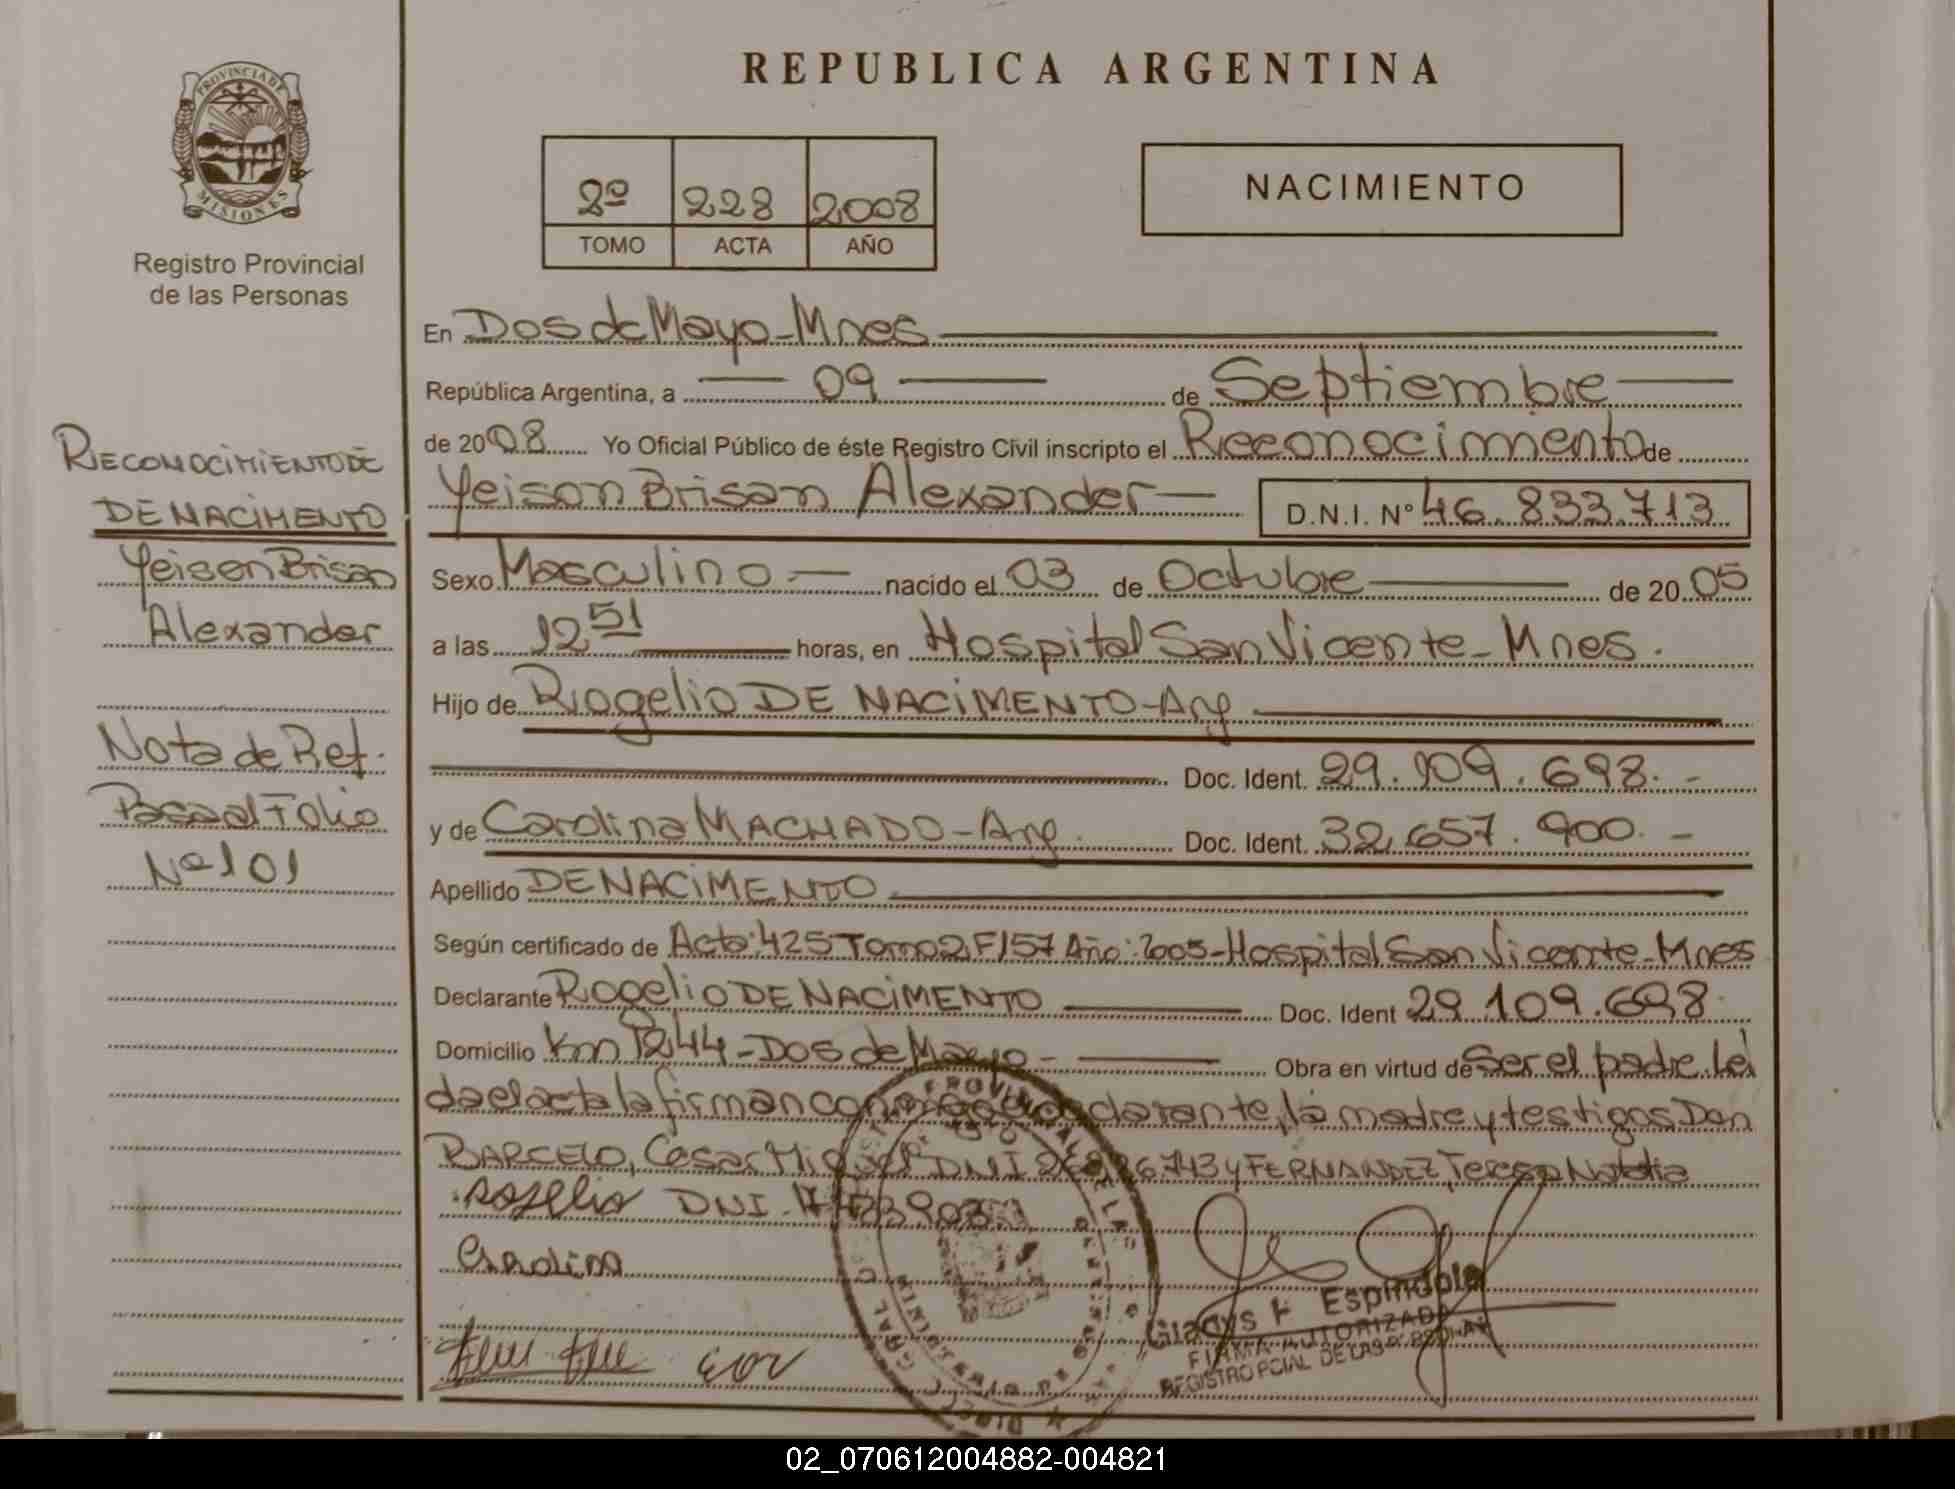 REPUBLICA ARGENTINA
PROVINCIA DE
MISIONES
Registro Provincial
de las Personas
2º 228 2008
TOMO ACTA AÑO
NACIMIENTO
RECONOCIMIENTO DE
DE NACIMENTO
Yeison Brisan
Alexander
Nota de Ref.
Pasa al Folio
Nº 101
En Dos de Mayo - Mnes
República Argentina, a 09 de Septiembre
de 2008 Yo Oficial Público de éste Registro Civil inscripto el Reconocimiento de
Yeison Brisan Alexander — D.N.I. Nº 46.833.713
Sexo Masculino — nacido el 03 de Octubre de 2005
a las 12 51 horas, en Hospital San Vicente - Mnes.
Hijo de Rogelio DE NACIMENTO - Arg
Doc. Ident. 29.109.698. -
y de Carolina MACHADO - Arg. Doc. Ident. 32.657.900. -
Apellido DE NACIMENTO
Según certificado de Acta: 425 Tomo 2 F/57 Año: 2005 - Hospital San Vicente - Mnes
Declarante Rogelio DE NACIMENTO Doc. Ident 29.109.698.
Domicilio Km 1244 - Dos de Mayo - Obra en virtud de Ser el padre. Leí
da el acta la firman conmigo el declarante, la madre y testigos Don
BARCELO, Cesar Miguel DNI y FERNANDEZ, Teresa Natalia
Rogelio DNI
Carolina
Gladys F Espindola
FIRMA AUTORIZADA
REGISTRO PCIAL DE LAS PERSONAS
02_070612004882-004821